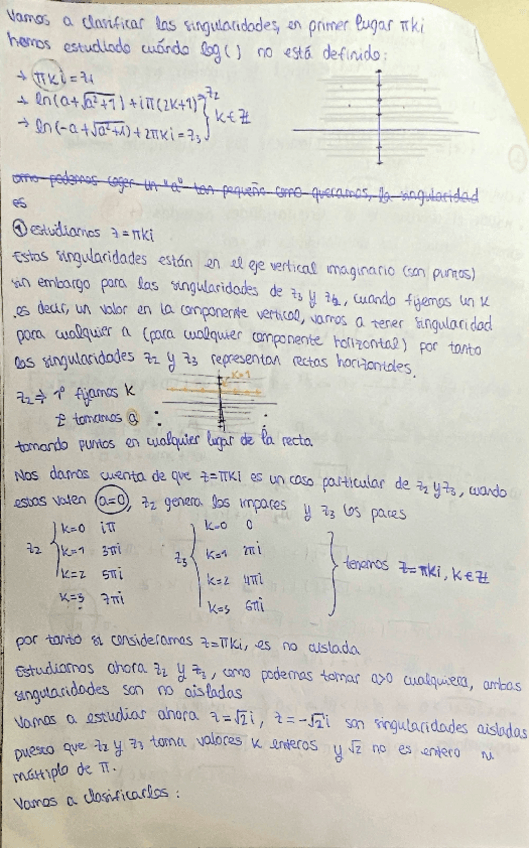 Vamos a clasificar las singularidades, en primer lugar πki
hemos estudiado cuándo log( ) no está definido:
→ πki = z₁
→ ln(a+√(a²+1)) + iπ(2k+1) = z₂
→ ln(-a+√(a²+1)) + 2πki = z₃ } k∈ℤ
como podemos coger un "a" tan pequeño como queramos, la singularidad
es
① estudiamos z = πki
Estas singularidades están en el eje vertical imaginario (son puntos)
sin embargo para las singularidades de z₃ y z₂, cuando fijemos un k
es decir, un valor en la componente vertical, vamos a tener singularidad
para cualquier a (para cualquier componente horizontal) por tanto
las singularidades z₂ y z₃ representan rectas horizontales.
k=1
z₂ ⇒ 1º fijamos k
2º tomamos a
tomando puntos en cualquier lugar de la recta
Nos damos cuenta de que z=πki es un caso particular de z₂ y z₃, cuando
estas valen a=0, z₂ genera los impares y z₃ los pares
z₂ { k=0 iπ z₃ { k=0 0
k=1 3πi k=1 2πi
k=2 5πi k=2 4πi } tenemos z=πki, k∈ℤ
k=3 7πi k=3 6πi
por tanto si consideramos z=πki, es no aislada
Estudiamos ahora z₂ y z₃, como podemos tomar a>0 cualquiera, ambas
singularidades son no aisladas
Vamos a estudiar ahora z=√2i, z=-√2i son singularidades aisladas
puesto que z₂ y z₃ toma valores k enteros y √2 no es entero ni
múltiplo de π.
Vamos a clasificarlas: